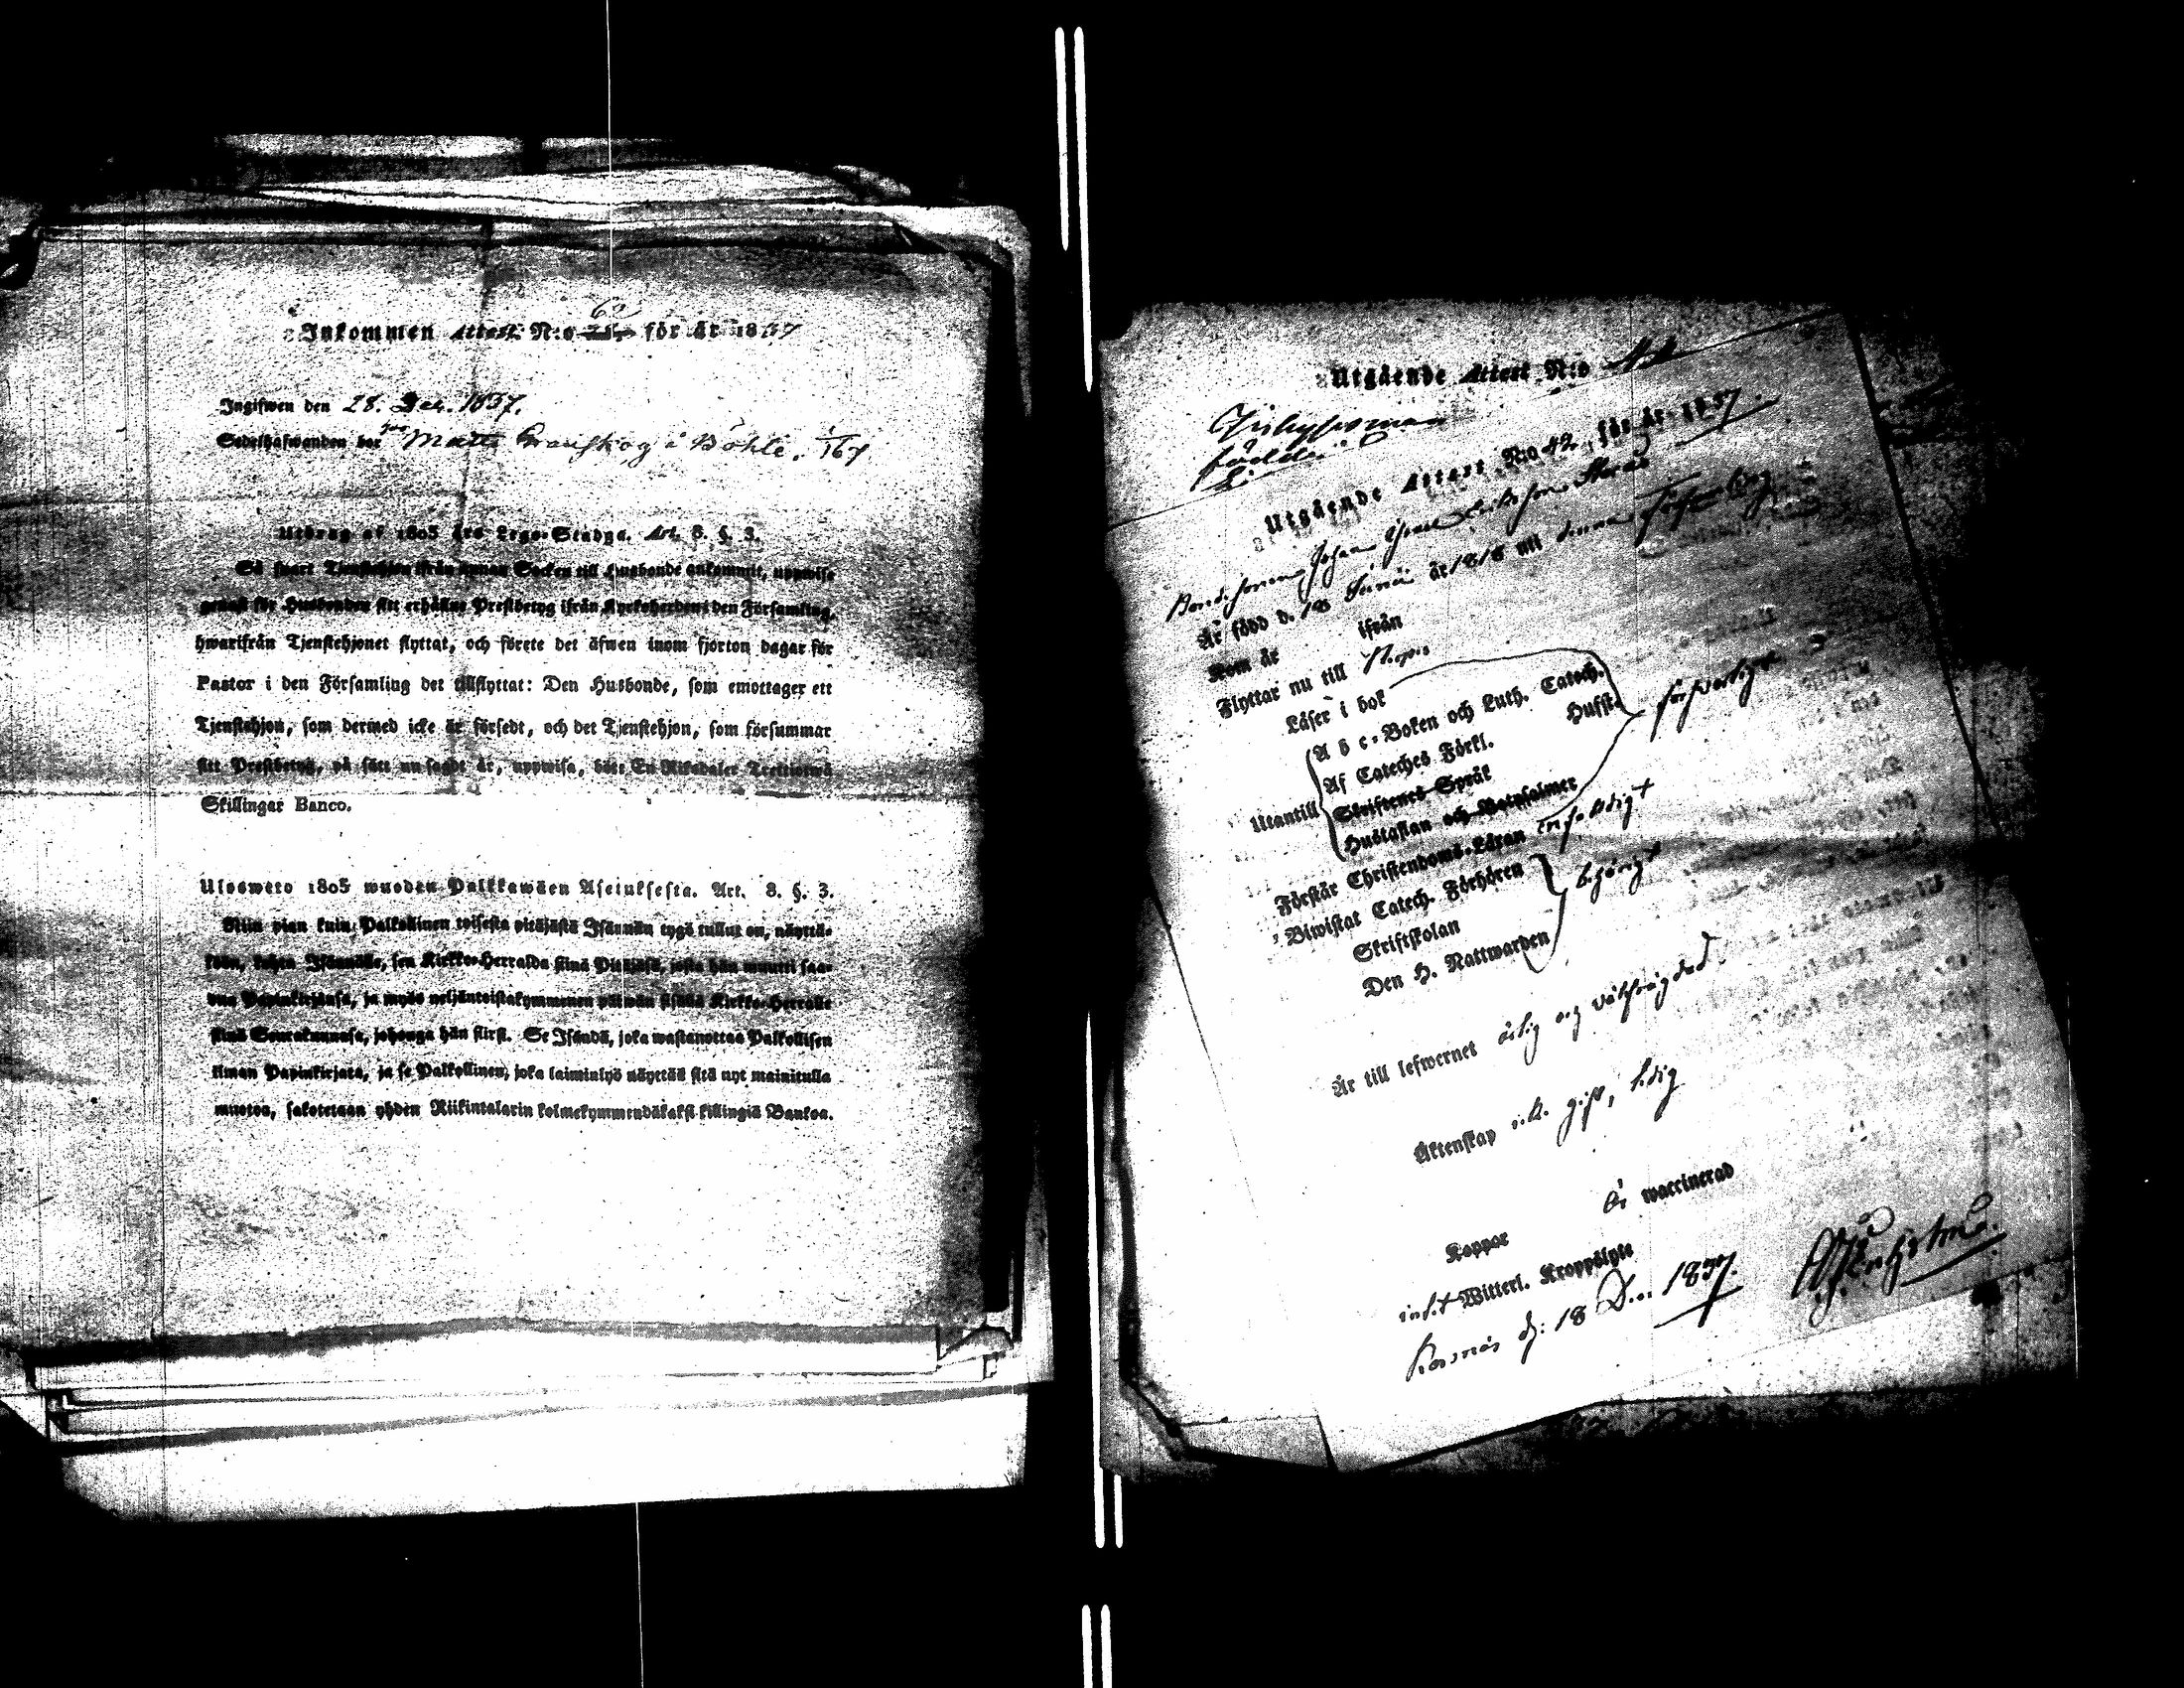 Inkommen Attest N:o 60 för år 1837
Ingifwen den 28. Dec. 1837.
Sedelhafwanden bor hos Matts Granskog i Böhle. 1/167
Utdrag af 1805 års Lego-Stadga. Art. 8. §. 3.
Så snart Tjenstehjon ifrån annan Socken till Husbonde ankommit, uppwise
genast för Husbonden sitt erhållne Prestbetyg ifrån Kyrkoherden i den Församling,
hwarifrån Tjenstehjonet flyttat, och förete det äfwen inom fjorton dagar för
Pastor i den Församling det tillflyttat: Den Husbonde, som emottager ett
Tjenstehjon, som dermed icke är försedt, och det Tjenstehjon, som försummar
sitt Prestbetyg, på sätt nu sagdt är, uppwisa, böte En Riksdaler Trettiotwå
Skillingar Banco.
Ulosweto 1805 wuoden Palkkawäen Aseiuksesta. Art. 8. §. 3.
Niin pian kuin Palkollinen toisesta pitäjästä Isännän tygö tullut on, näyttä-
köön, kohta Isännälle, sen Kirkko-Herralda siinä Pitäjäsä, josta hän muutti saa-
dun Papinkirjansa, ja myös neljäntoistakymmenen päiwän sisällä Kirkko-Herralle
siinä Seurakunnasa, johonga hän siirsi. Se Isändä, joka wastanottaa Palkollisen
ilman Papinkirjata, ja se Palkollinen, joka laiminlyö näyttää sitä nyt mainitulla
muotoa, sakotetaan yhden Riikintalarin kolmekymmendäkaksi killingiä Bankoa.
Utgående Attest N:o
Utgående Attest N:o 42, för år 1837.
Bondesonen Johan
Är född d. 18 Junii år 1818 uti denna Församling
Kom år ifrån
Flyttar nu till
Läser i bok
A b c-Boken och Luth. Catech.
Af Cateches Förkl. Husst.
Utantill Skriftenes Språk
Hustaflan och Botpsalmer försvarligt
Förstår Christendoms-Läran enfaldigt
Biwistat Catech. Förhören
Skriftskolan behörigt
Den H. Nattwarden
Är till lefwernet ärlig och välfrägdad
Äktenskap ick. gift, ledig
Koppor är waccinerad
intet Witterl. Kroppslyte
d: 18 Dec. 1837.